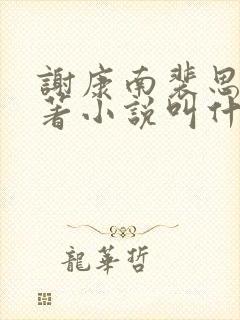 謝康南裴思
著小說叫什
龍華哲